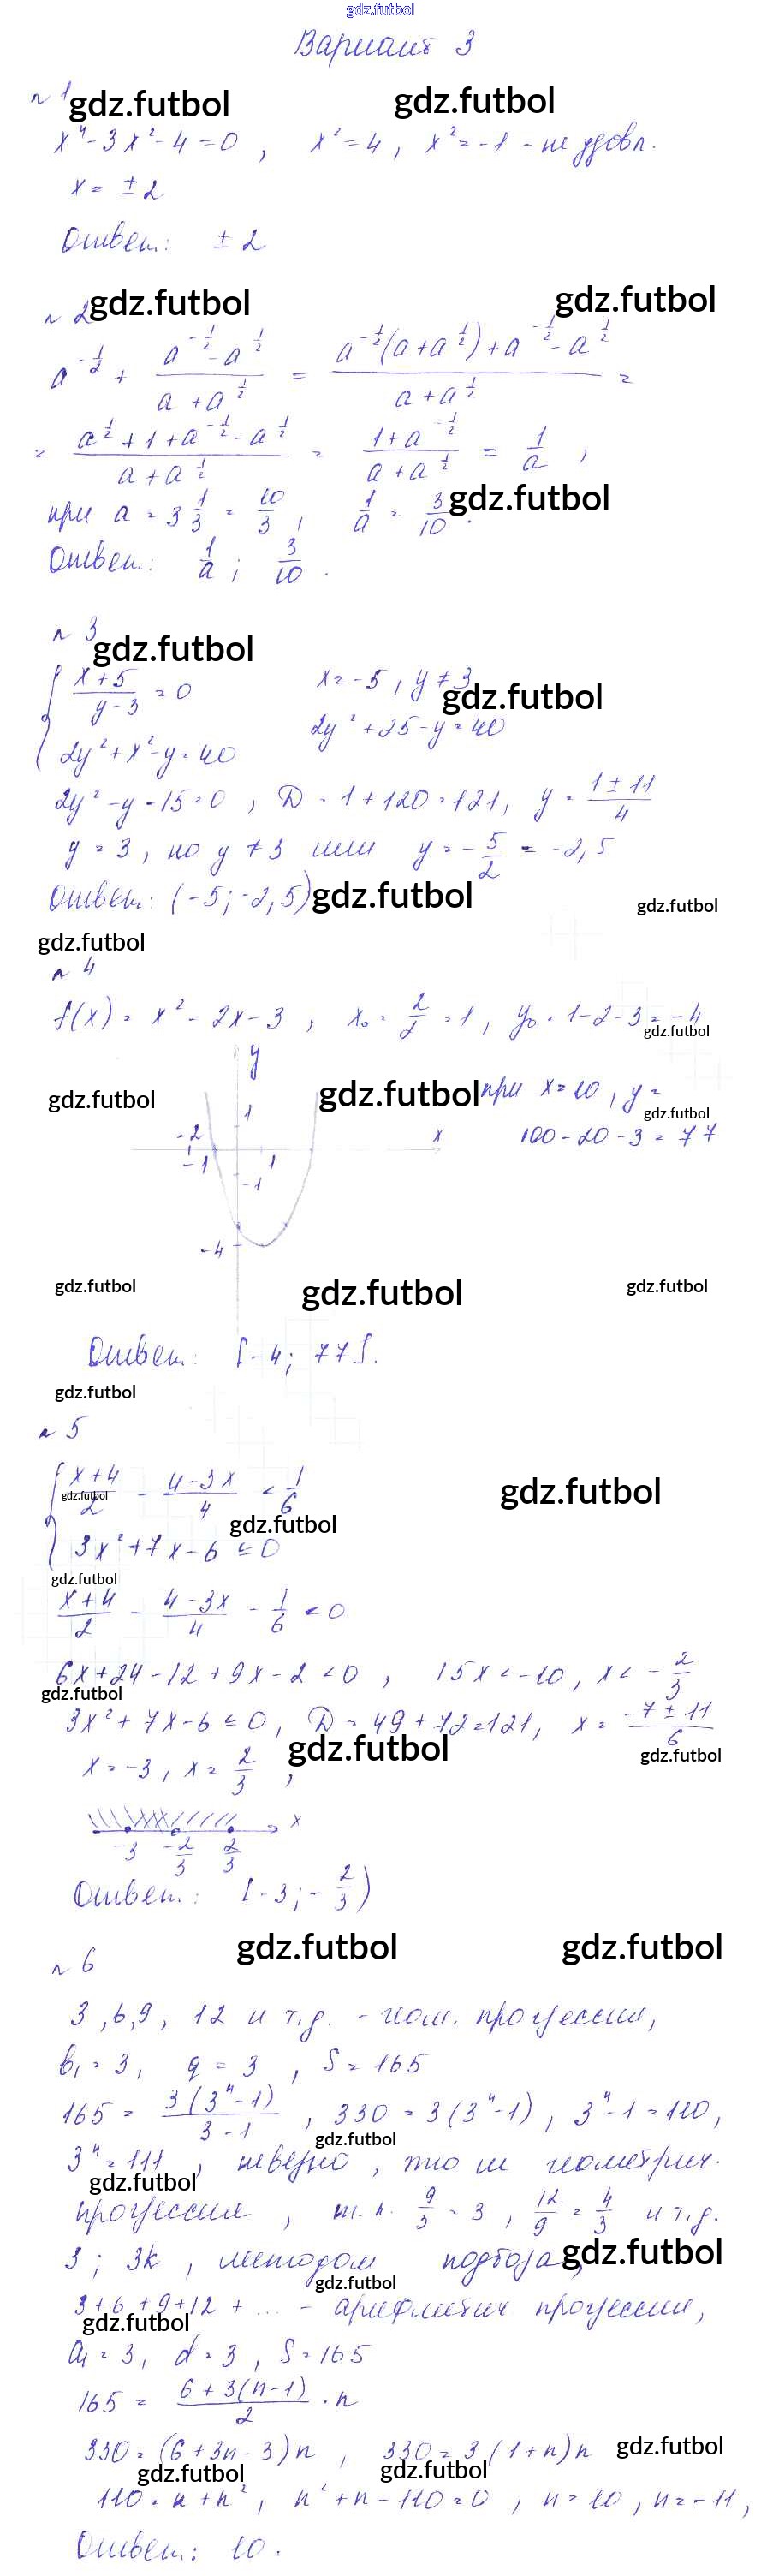 gdz.futbol
Вариант 3
№ 1 gdz.futbol gdz.futbol
x⁴ - 3x² - 4 = 0 , x² = 4 , x² = -1 - не удовл.
x = ± 2
Ответ: ± 2
№ 2 gdz.futbol gdz.futbol
a^(-1/2) + (a^(-1/2) - a^(1/2))/(a + a^(1/2)) = (a^(-1/2)(a + a^(1/2)) + a^(-1/2) - a^(1/2))/(a + a^(1/2)) =
= (a^(1/2) + 1 + a^(-1/2) - a^(1/2))/(a + a^(1/2)) = (1 + a^(-1/2))/(a + a^(1/2)) = 1/a ,
при a = 3 1/3 = 10/3 , 1/a = 3/10 . gdz.futbol
Ответ: 1/a ; 3/10 .
№ 3
gdz.futbol
{ (x + 5)/(y - 3) = 0 x = -5 , y ≠ 3
gdz.futbol
2y² + x² - y = 40 2y² + 25 - y = 40
2y² - y - 15 = 0 , D = 1 + 120 = 121 , y = (1 ± 11)/4
y = 3 , но y ≠ 3 или y = -5/2 = -2,5
Ответ: (-5; -2,5) gdz.futbol gdz.futbol
gdz.futbol
№ 4
f(x) = x² - 2x - 3 , x₀ = 2/2 = 1 , y₀ = 1 - 2 - 3 = -4
gdz.futbol
y
gdz.futbol gdz.futbol при x = 10 , y =
1 gdz.futbol
-2 x 100 - 20 - 3 = 77
-1 1
-1
-4
gdz.futbol gdz.futbol gdz.futbol
Ответ: [-4; 77].
gdz.futbol
№ 5
{ (x + 4)/2 - (4 - 3x)/4 < 1/6 gdz.futbol
gdz.futbol
gdz.futbol
3x² + 7x - 6 ≤ 0
gdz.futbol
(x + 4)/2 - (4 - 3x)/4 - 1/6 < 0
6x + 24 - 12 + 9x - 2 < 0 , 15x < -10 , x < -2/3
gdz.futbol
3x² + 7x - 6 ≤ 0 , D = 49 + 72 = 121 , x = (-7 ± 11)/6
gdz.futbol gdz.futbol
x = -3 , x = 2/3 ,
x
-3 -2/3 2/3
Ответ: [-3; -2/3)
№ 6 gdz.futbol gdz.futbol
3 , 6 , 9 , 12 и т.д. - геом. прогрессия,
b₁ = 3 , q = 3 , S = 165
165 = 3(3ⁿ - 1)/(3 - 1) , 330 = 3(3ⁿ - 1) , 3ⁿ - 1 = 110 ,
gdz.futbol
3ⁿ = 111 , неверно , это не геометрич.
gdz.futbol
прогрессия , т.к. 9/3 = 3 , 12/9 = 4/3 и т.д.
3 ; 3k , методом подбора, gdz.futbol
gdz.futbol
3 + 6 + 9 + 12 + ... - арифметич прогрессия,
gdz.futbol
a₁ = 3 , d = 3 , S = 165
165 = (6 + 3(n - 1))/2 · n
330 = (6 + 3n - 3)n , 330 = 3(1 + n)n gdz.futbol
gdz.futbol gdz.futbol
110 = n + n² , n² + n - 110 = 0 , n = 10 , n = -11 ,
Ответ: 10 .